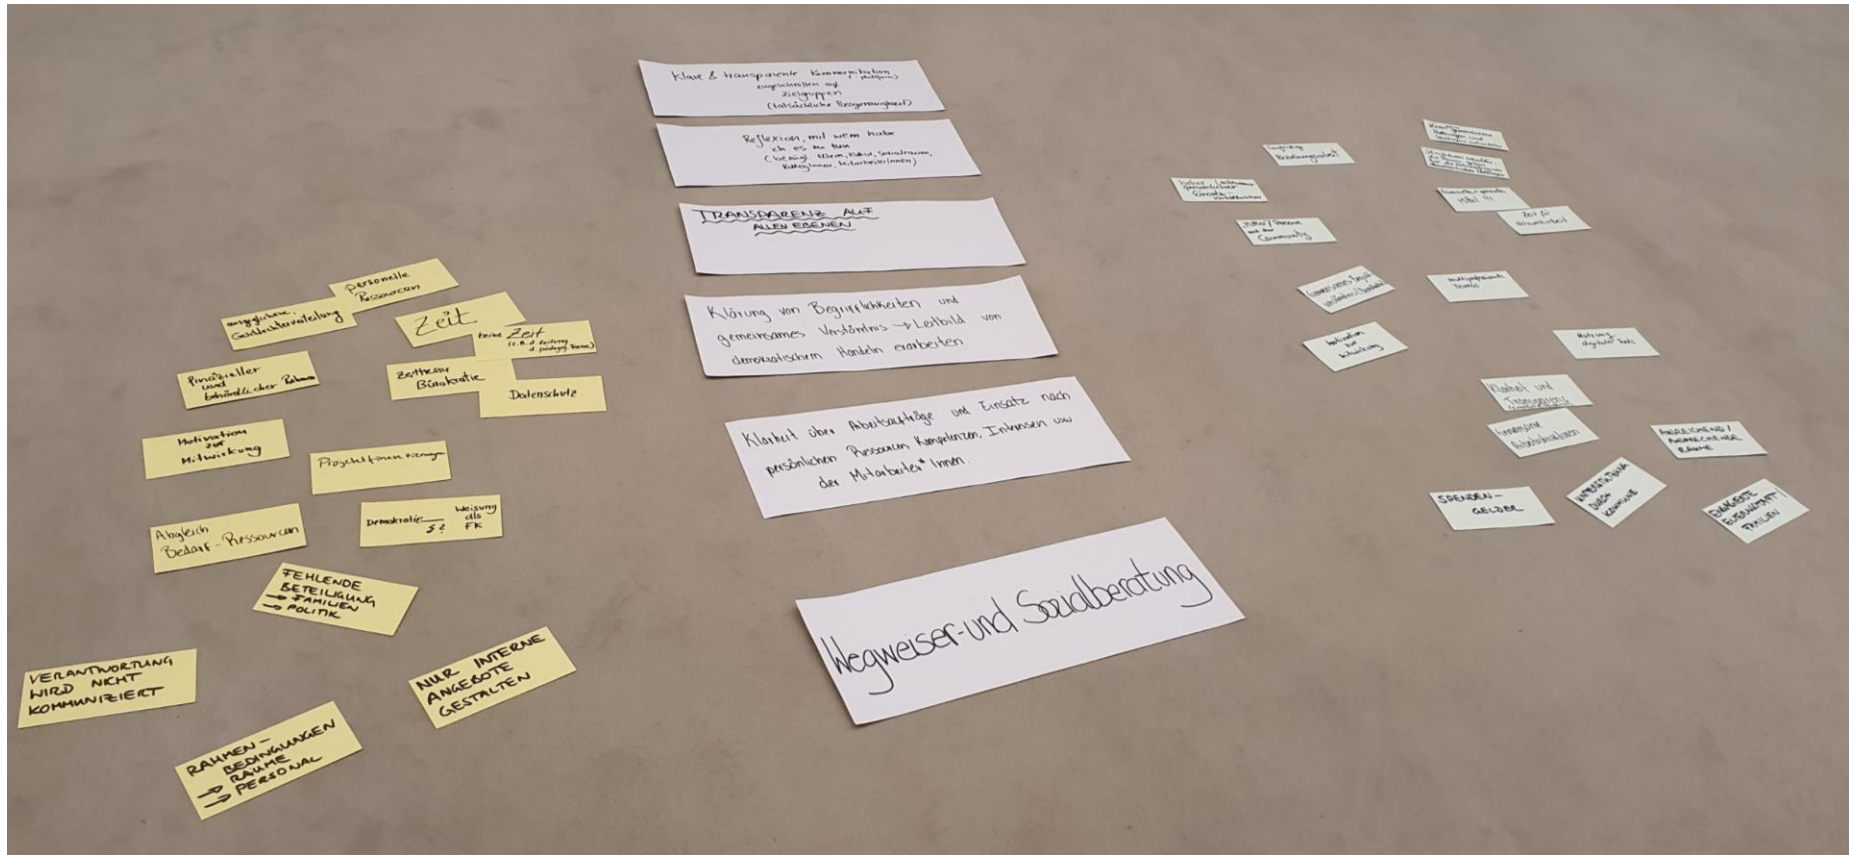 personelle
Ressourcen
ausgeglichene
Geschlechterverteilung
Zeit
keine Zeit
(z.B. d. Leitung
d. pädagog. Teams)
Finazieller
und
behördlicher Rahmen
Bürokratie
Datenschutz
Motivation
zur
Mitwirkung
Projektfinanzierungen
Abgleich
Bedarf-Ressourcen
Demokratie
Weisung
als
FK
FEHLENDE
BETEILIGUNG
→ FAMILIEN
→ POLITIK
VERANTWORTUNG
WIRD NICHT
KOMMUNIZIERT
NUR INTERNE
ANGEBOTE
GESTALTEN
RAHMEN-
BEDINGUNGEN
→ RÄUME
→ PERSONAL
Klare & transparente Kommunikation
(-plattform)
zugeschnitten auf
Zielgruppen
(tatsächliche Passgenauigkeit)
Reflexion, mit wem habe
ich es zu tun
(bezügl. Eltern, Kultur, Sozialraum,
KollegInnen, MitarbeiterInnen)
TRANSPARENZ AUF
ALLEN EBENEN
Klärung von Begrifflichkeiten und
gemeinsames Verständnis → Leitbild von
demokratischem Handeln erarbeiten
Klarheit über Arbeitsaufträge und Einsatz nach
persönlichen Ressourcen, Kompetenzen, Interessen usw
der Mitarbeiter*Innen.
Wegweiser- und Sozialberatung
Beziehungsarbeit
hoher
persönlicher
Einsatz
aus der
Community
Mittel !!!
Zeit für
multiprofessionelle
Teams
Motivation
zur
Mitwirkung
Nutzung
digitaler Tools
Klarheit und
Transparenz
SPENDEN-
GELDER
UNTERSTÜTZUNG
DURCH
KOMMUNE
AUSREICHEND /
ANSPRECHENDE
RÄUME
ENGAGIERTE
ELTERNSCHAFT /
FAMILIEN